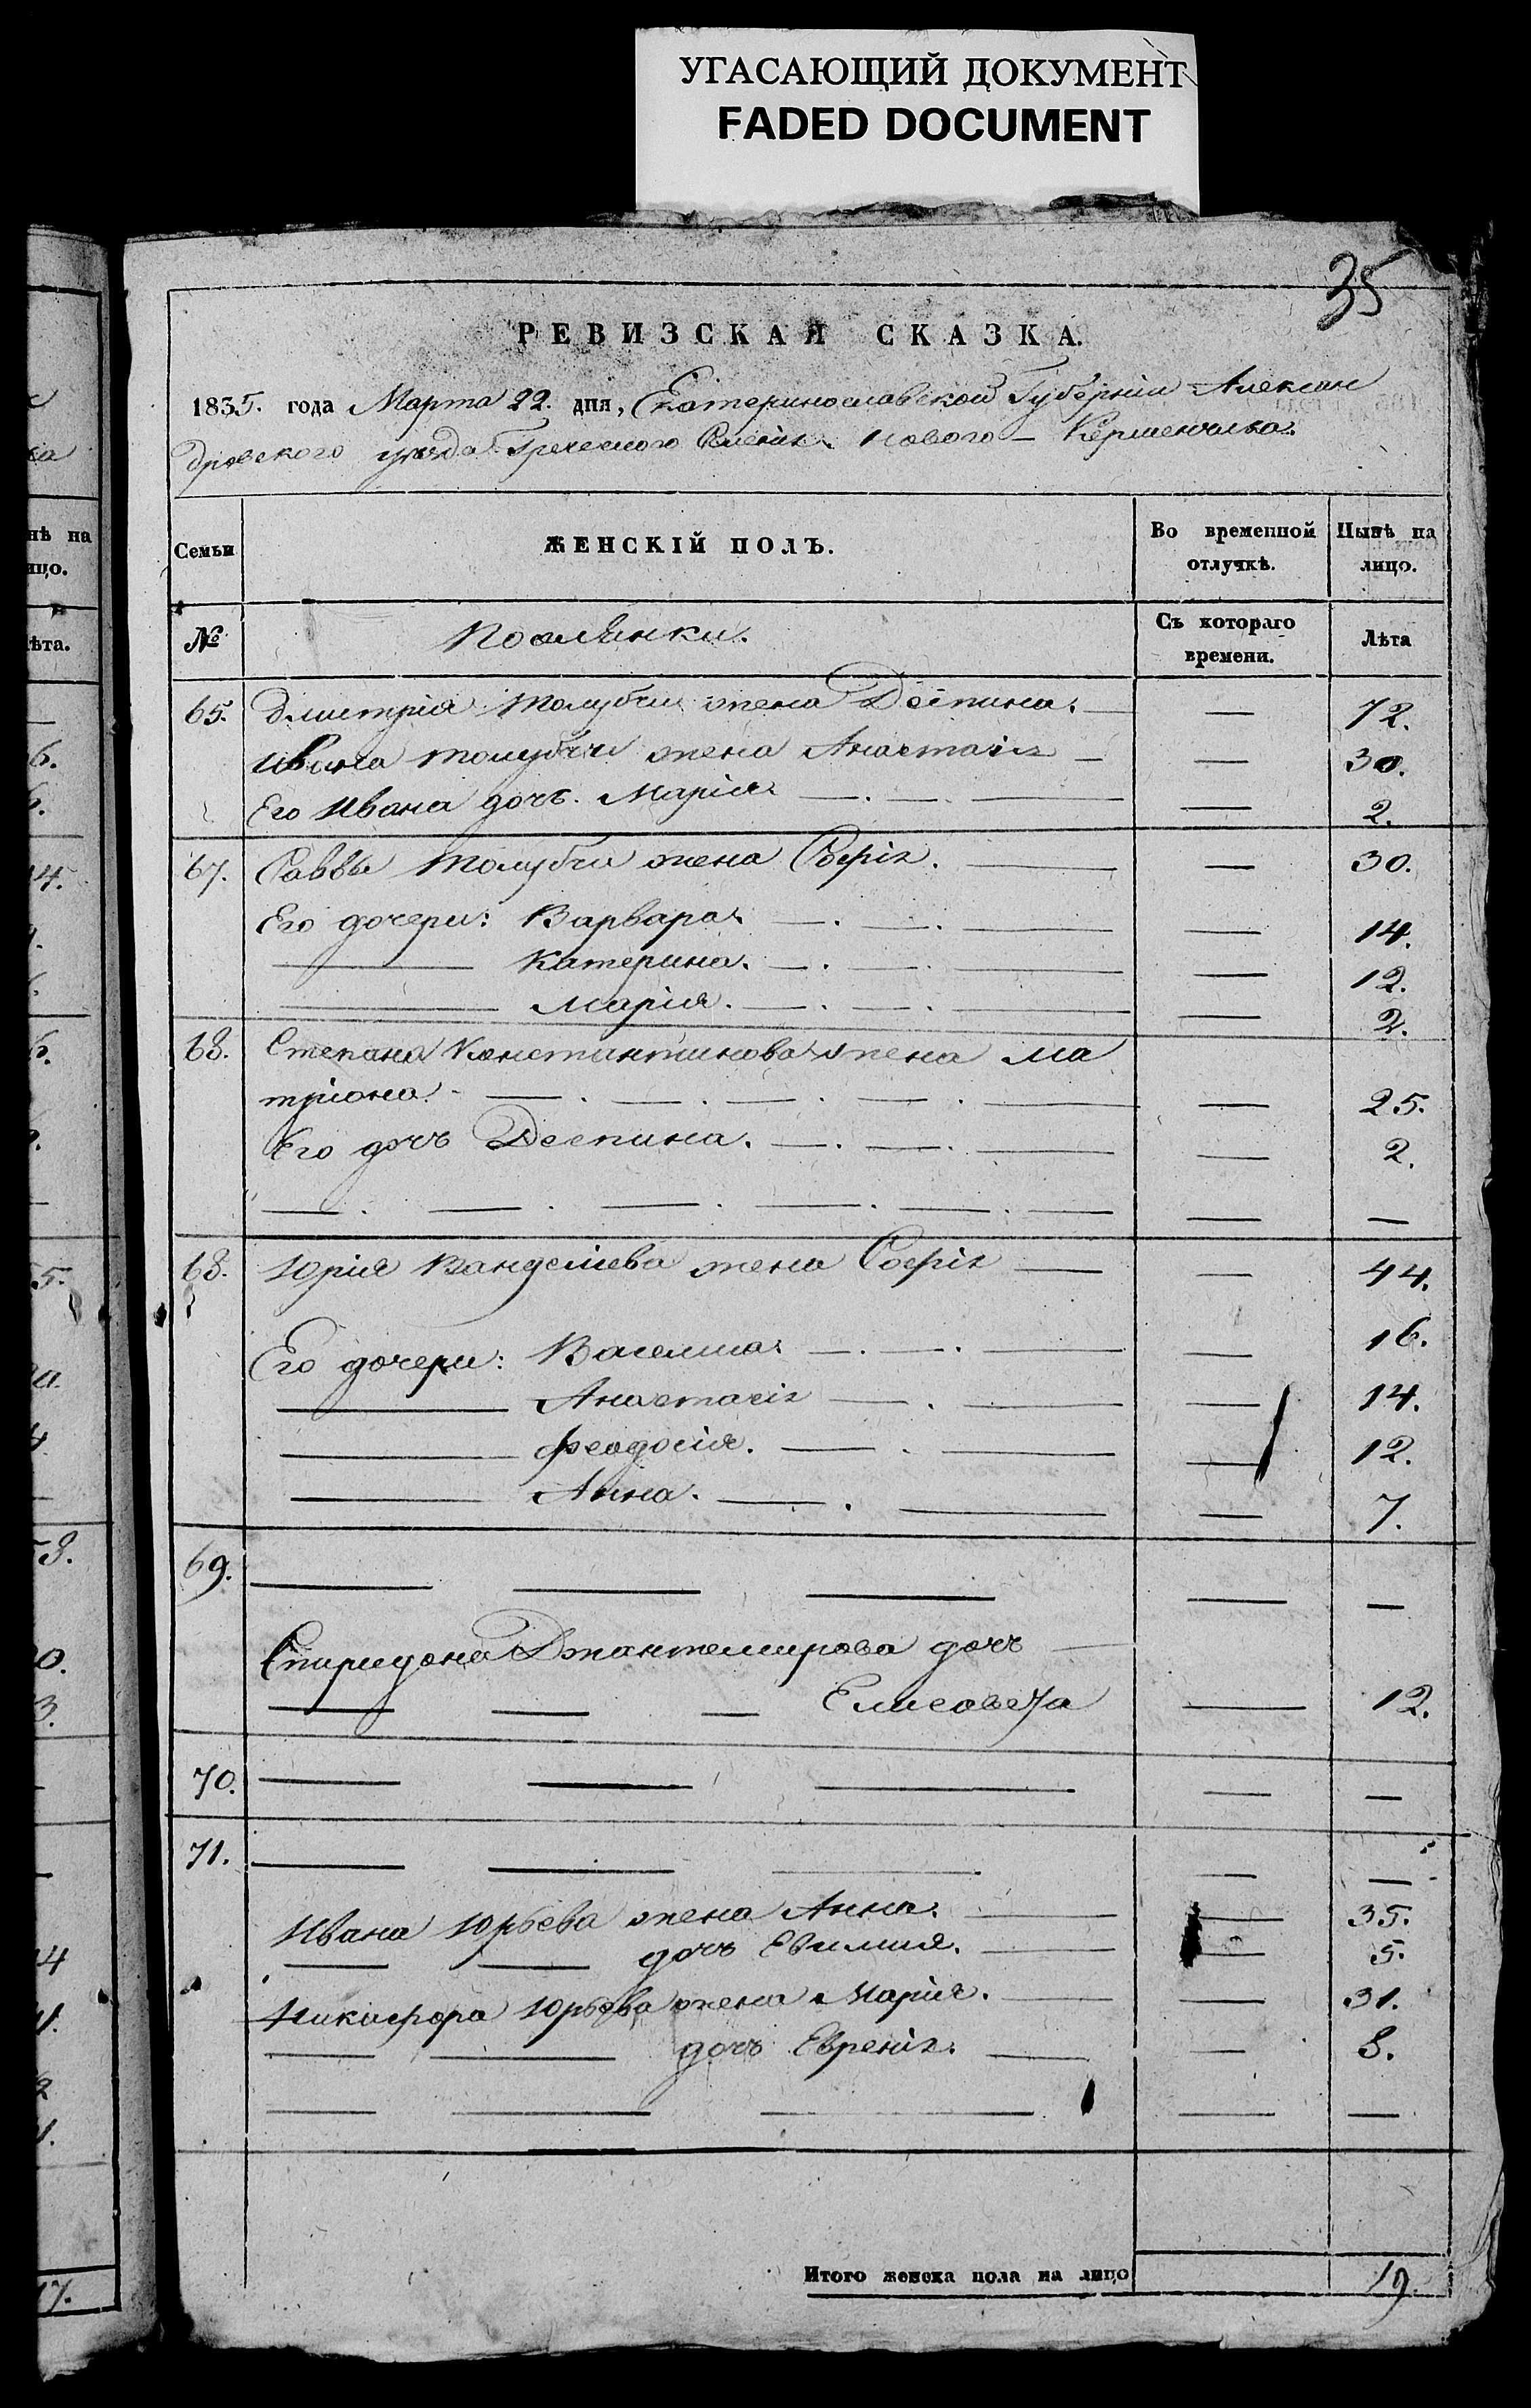 УГАСАЮЩИЙ ДОКУМЕНТ
FADED DOCUMENT
35
РЕВИЗСКАЯ СКАЗКА.
1835. года Марта 22. дня, Екатеринославской Губерніи Алексан
дровского уезда Греческого Селенія Нового – Керменчика.
Семьи
ЖЕНСКІЙ ПОЛЪ.
Во временной отлучкѣ.
Нынѣ на лицо.
№
Поселянки.
Съ котораго времени.
Лѣта
65. Дмитрія Толубчи жена Деспина. — — 72.
Ивана Толубчи жена Анастасія — — 30.
Его Ивана дочь. Марія — — 2.
67. Саввы Толубчи жена Софія. — — 30.
Его дочери: Варвара — — 14.
— Катерина. — — 12.
— Марія. — — 2.
68. Степана Константинова жена Ма
тріона. — — 25.
Его дочь Деспина. — — 2.
— — —
68. Юрія Вангеліева жена Софія — — 44.
Его дочери: Василиса — — 16.
— Анастасія — — 14.
— Феодосія. — — 12.
— Анна. — — 7.
69. — — —
Спиридона Джантемирова дочь —
— Елисавета — 12.
70. — — —
71. — — —
Ивана Юрьева жена Анна. — — 35.
— — дочь Евимия. — — 5.
Никифора Юрьева жена Марія. — — 31.
— — дочь Евренія. — — 8.
— — —
Итого женска пола на лицо 19.
нѣ на
ицо.
ѣта.